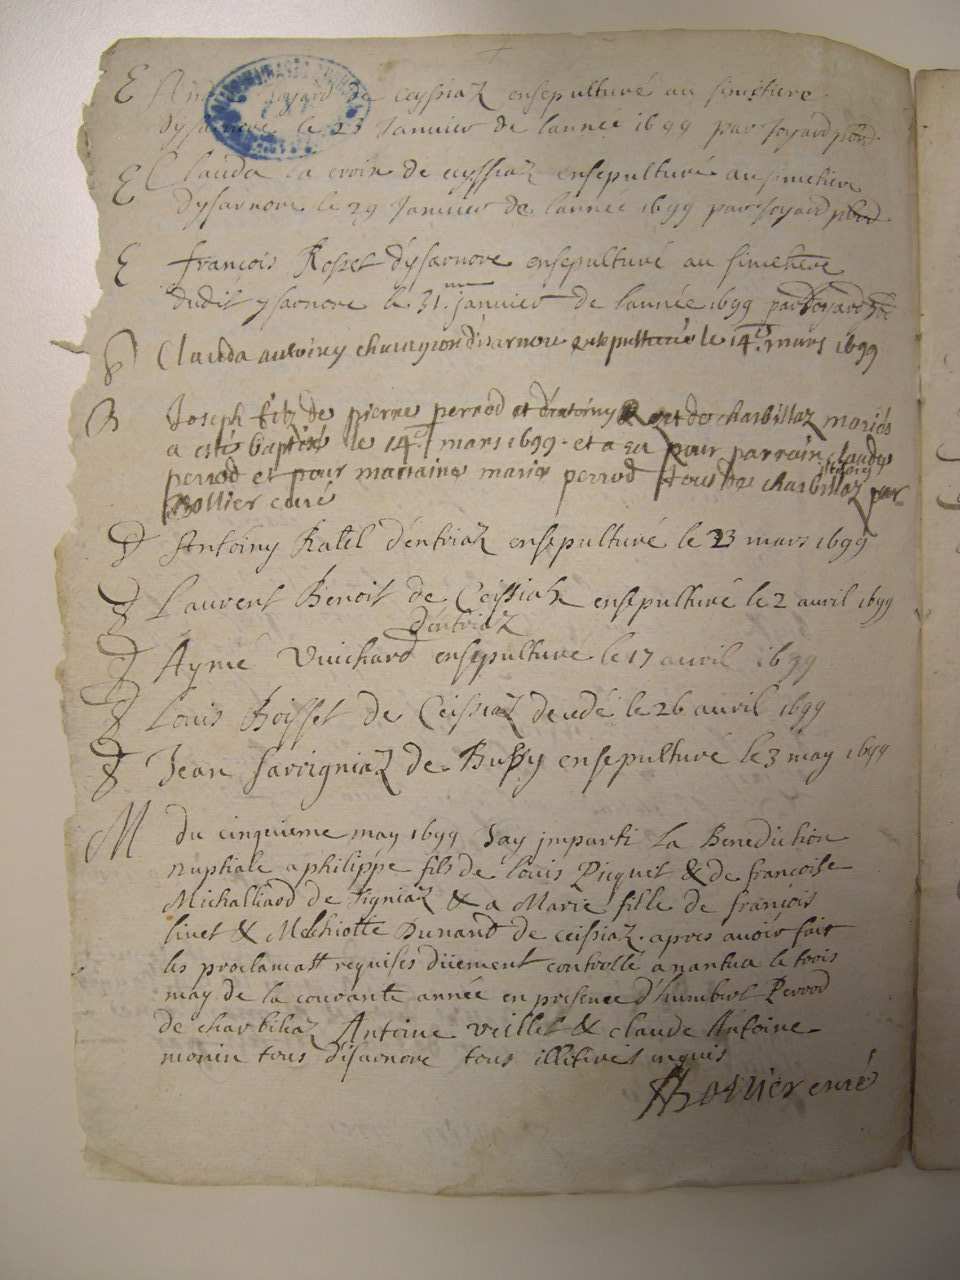 E And Joyard de Ceyssiaz ensepulturé au simistiere
dysarnore le 23 Janvier de lannee 1699 par Joyard
E Clauda la croix de ceyssiaz ensepulturé au simetiere
dysarnore le 29 Janvier de lannee 1699 par Joyard
E francois Rosset dysarnore ensepulturé au simetiere
dudit ysarnore le 31 janvier de lannée 1699 par Joyard
S Clauda disarnore le 14 mars 1699
B Joseph filz de pierre perrod et de charbillaz mariés
a esté baptisé le 14 mars 1699 et a eu pour parrain claude
perrod et pour marraine marie perrod tous de charbillaz par
Bollier curé
S Antoiny Ratel dentriaz ensepulturé le 23 mars 1699
S Laurent Benoit de Ceissiaz ensepulturé le 2 avril 1699
dentriaz
S Aymé Vuichard ensepulturé le 17 avril 1699
S Louis Boisset de Ceissiaz decedé le 26 avril 1699
S Jean Savigniaz de Bussy ensepulturé le 3 may 1699
M du cinquieme may 1699 Jay imparti la Benediction
nuptiale a philippe fils de Louis Piquet & de francoise
Michalliard de & a Marie fille de francois
livet & Melchiotte Dunand de ceissiaz. apres avoir fait
les proclamatt requises düement controllé a nantua le trois
may de la courante année en presence d'humbert Perrod
de charbillaz Antoine veillet & claude Antoine
monin tous disarnore tous illiterés inquis
Bollier curé